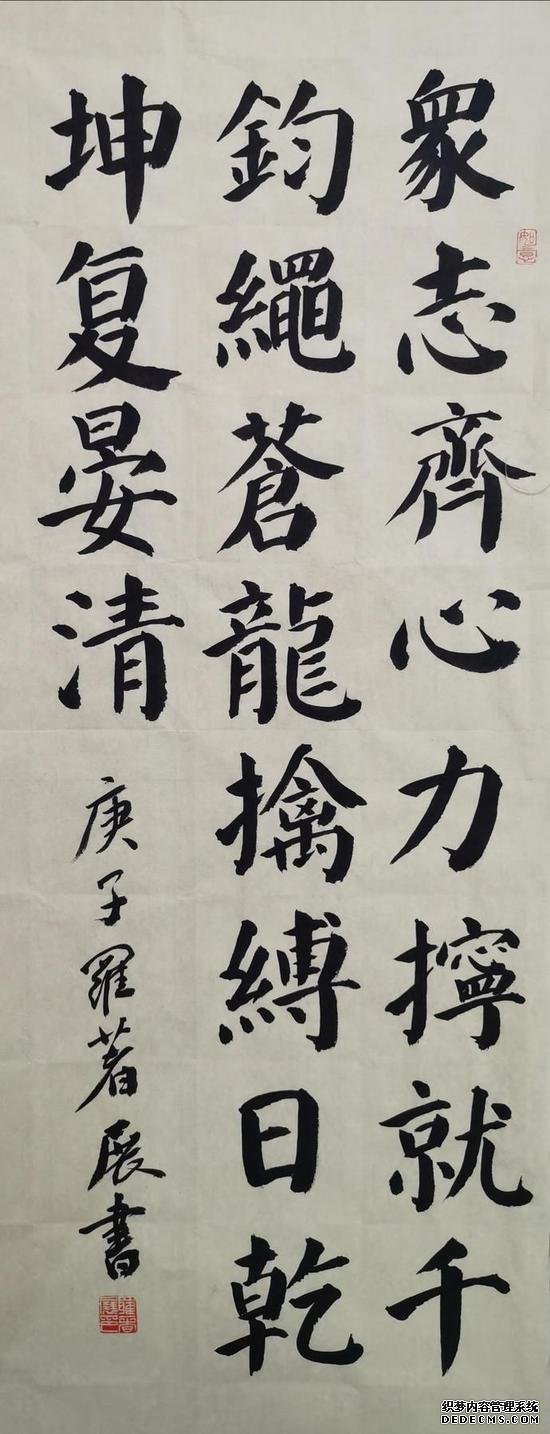 衆志齊心力擰就千
鈞繩蒼龍擒縛日乾
坤复晏清
庚子羅著展書
如意
织梦内容管理系统
DEDECMS.COM